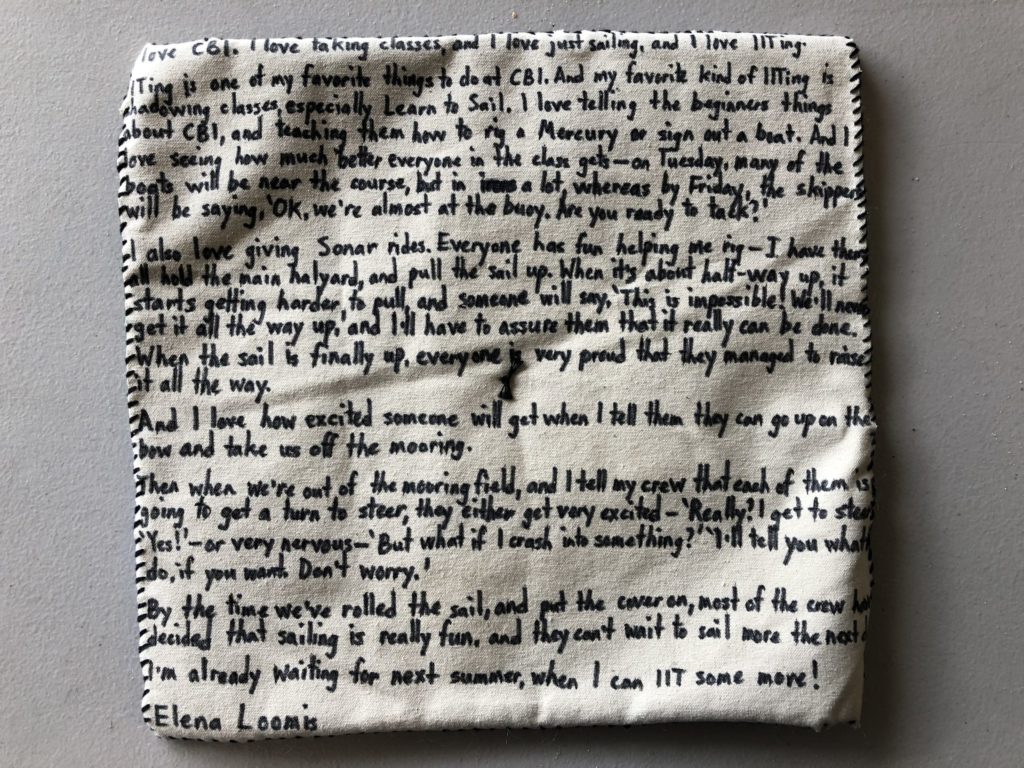 love CBI. I love taking classes, and I love just sailing, and I love IITing.
ITing is one of my favorite things to do at CBI. And my favorite kind of IITing is
hadowing classes, especially Learn to Sail. I love telling the beginners things
about CBI, and teaching them how to rig a Mercury or sign out a boat. And I
love seeing how much better everyone in the class gets – on Tuesday, many of the
boats will be near the course, but in a lot, whereas by Friday, the skippers
will be saying, 'OK, we're almost at the buoy. Are you ready to tack?'
I also love giving Sonar rides. Everyone has fun helping me rig – I have them
all hold the main halyard, and pull the sail up. When it's about half-way up, it
starts getting harder to pull, and someone will say, 'This is impossible! We'll never
get it all the way up,' and I'll have to assure them that it really can be done.
When the sail is finally up, everyone is very proud that they managed to raise
it all the way.
And I love how excited someone will get when I tell them they can go up on the
bow and take us off the mooring.
Then when we're out of the mooring field, and I tell my crew that each of them is
going to get a turn to steer, they either get very excited – 'Really? I get to steer
'Yes!' – or very nervous – 'But what if I crash into something?' 'I'll tell you what
do, if you want. Don't worry.'
By the time we've rolled the sail, and put the cover on, most of the crew ha
decided that sailing is really fun, and they can't wait to sail more the next d
I'm already waiting for next summer, when I can IIT some more!
Elena Loomis